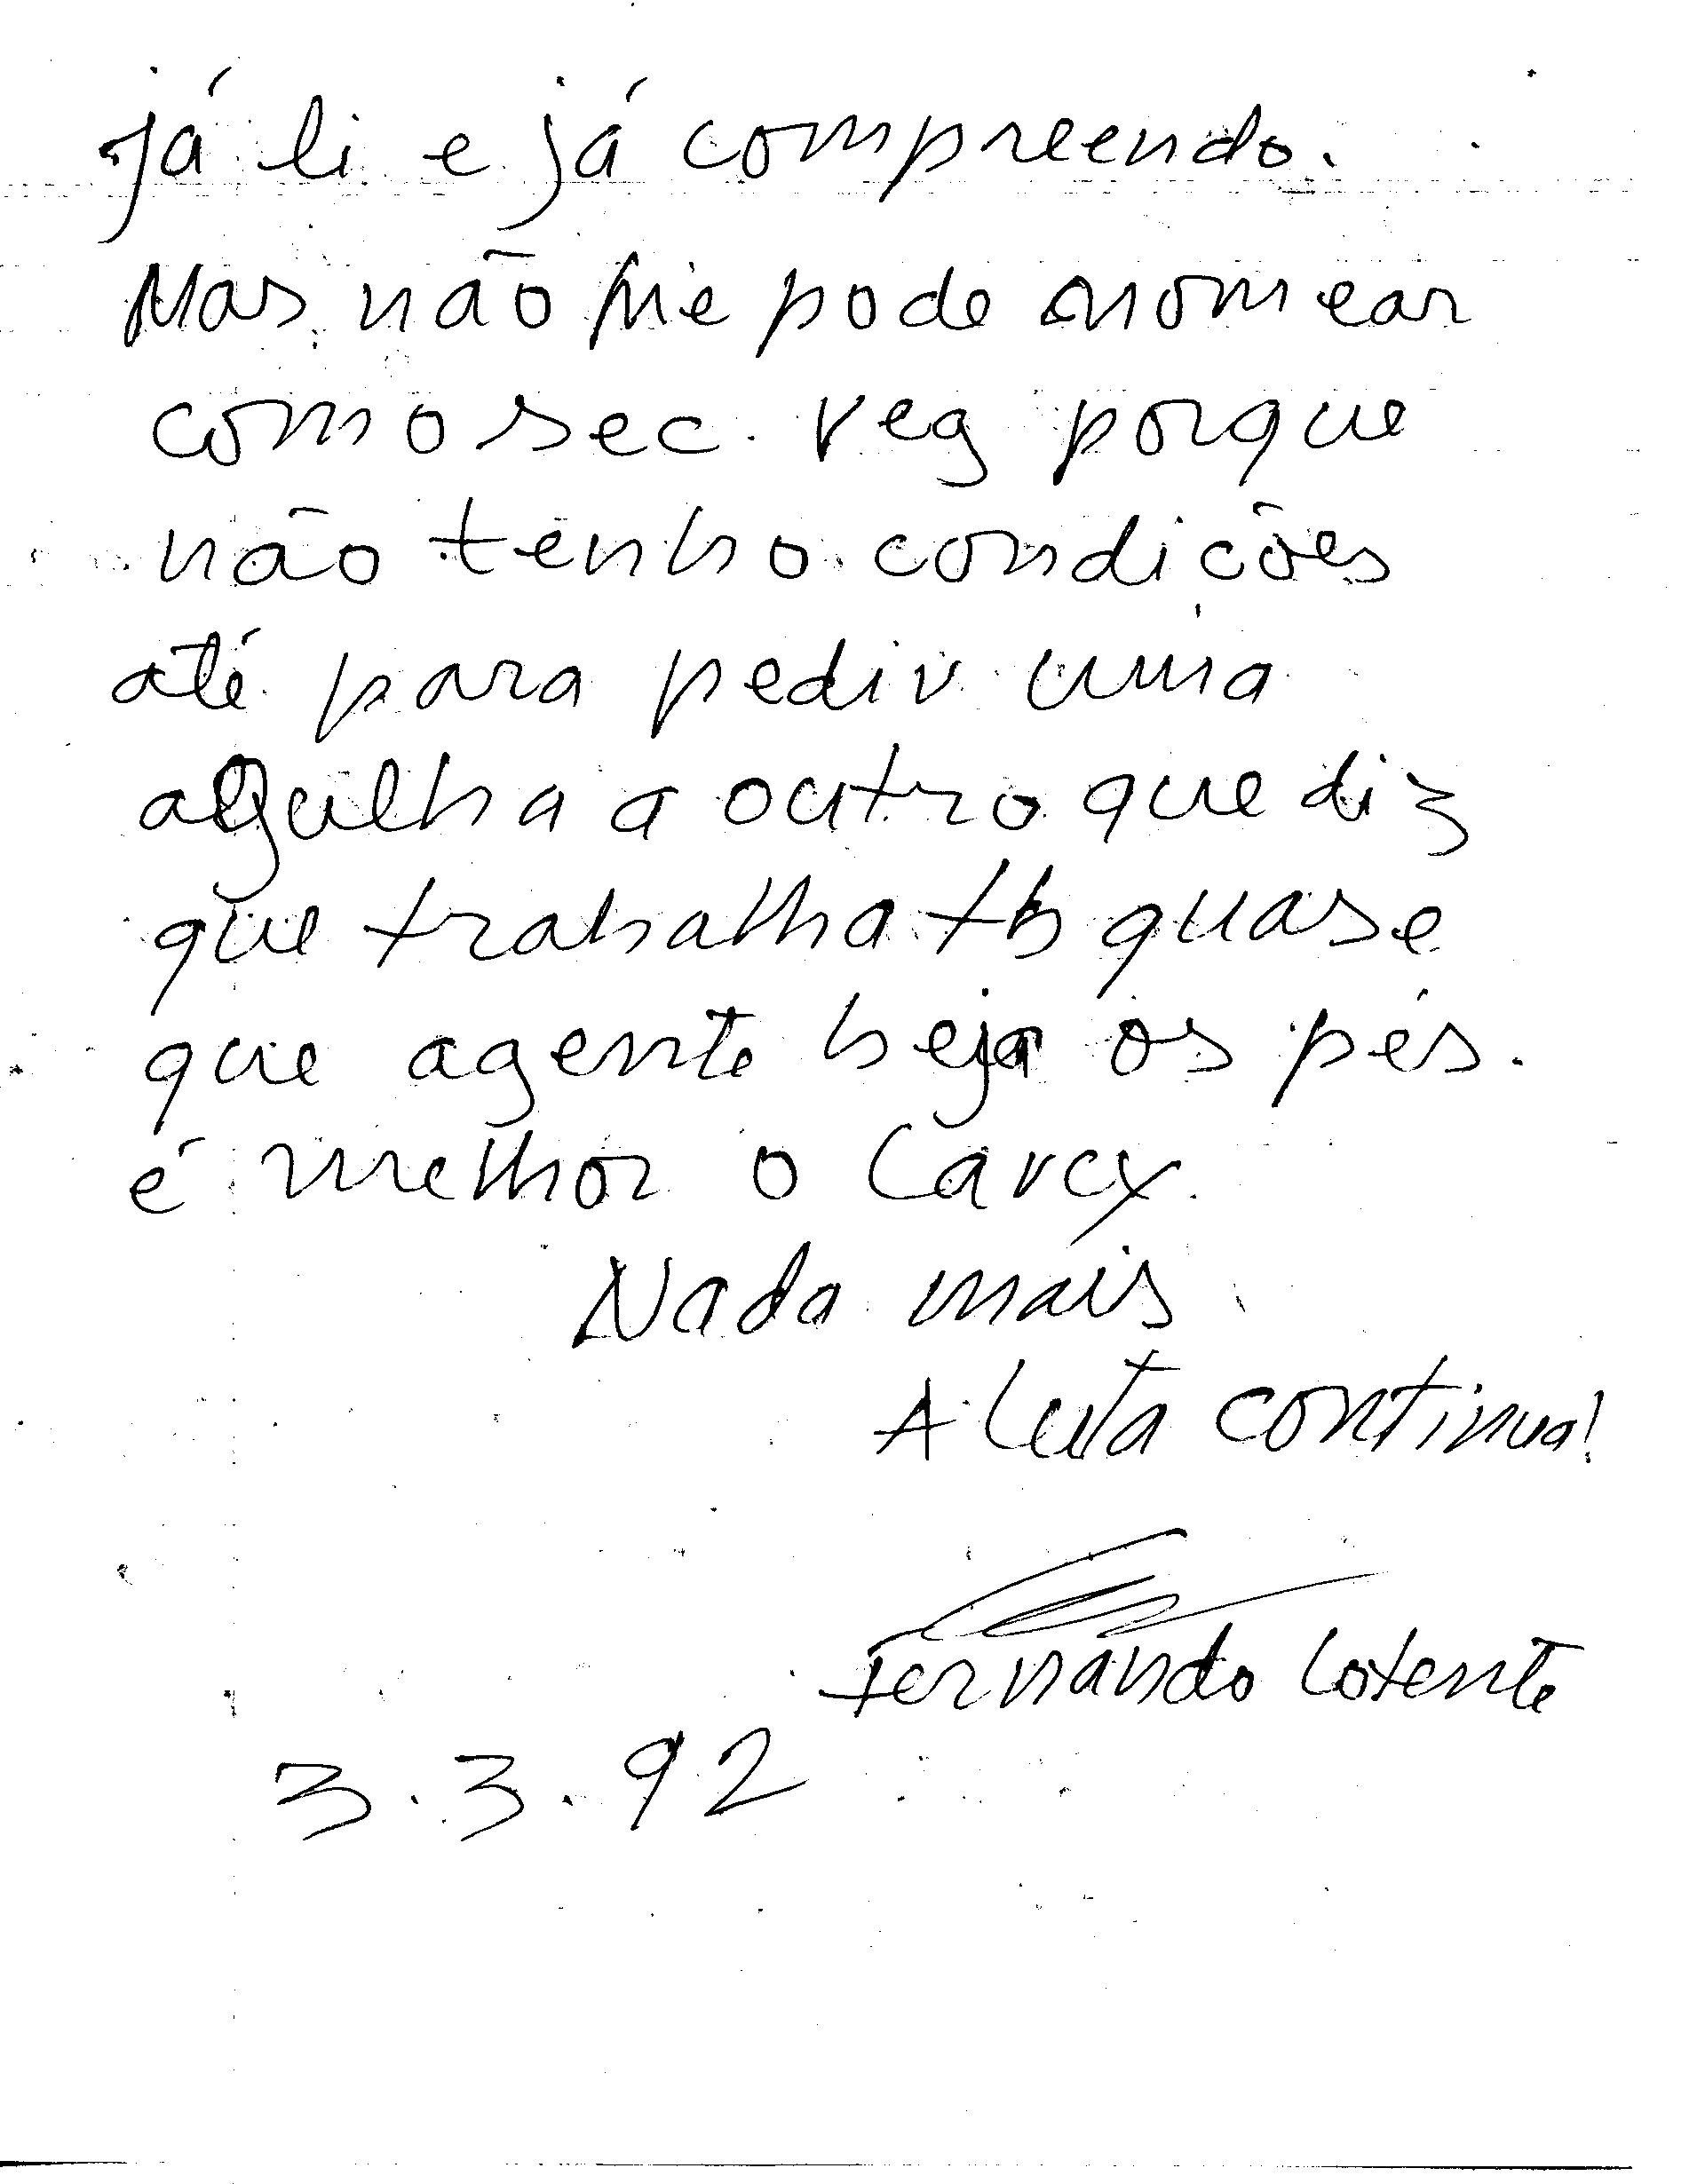 Já li e já compreendo.
Mas não me pode nomear
como sec. reg porque
não tenho condições
até para pedir uma
agulha a outro que diz
que trabalha tb quase
que agente beja os pés.
é melhor o
Nada mais
A luta continua!
Fernando
3.3.92